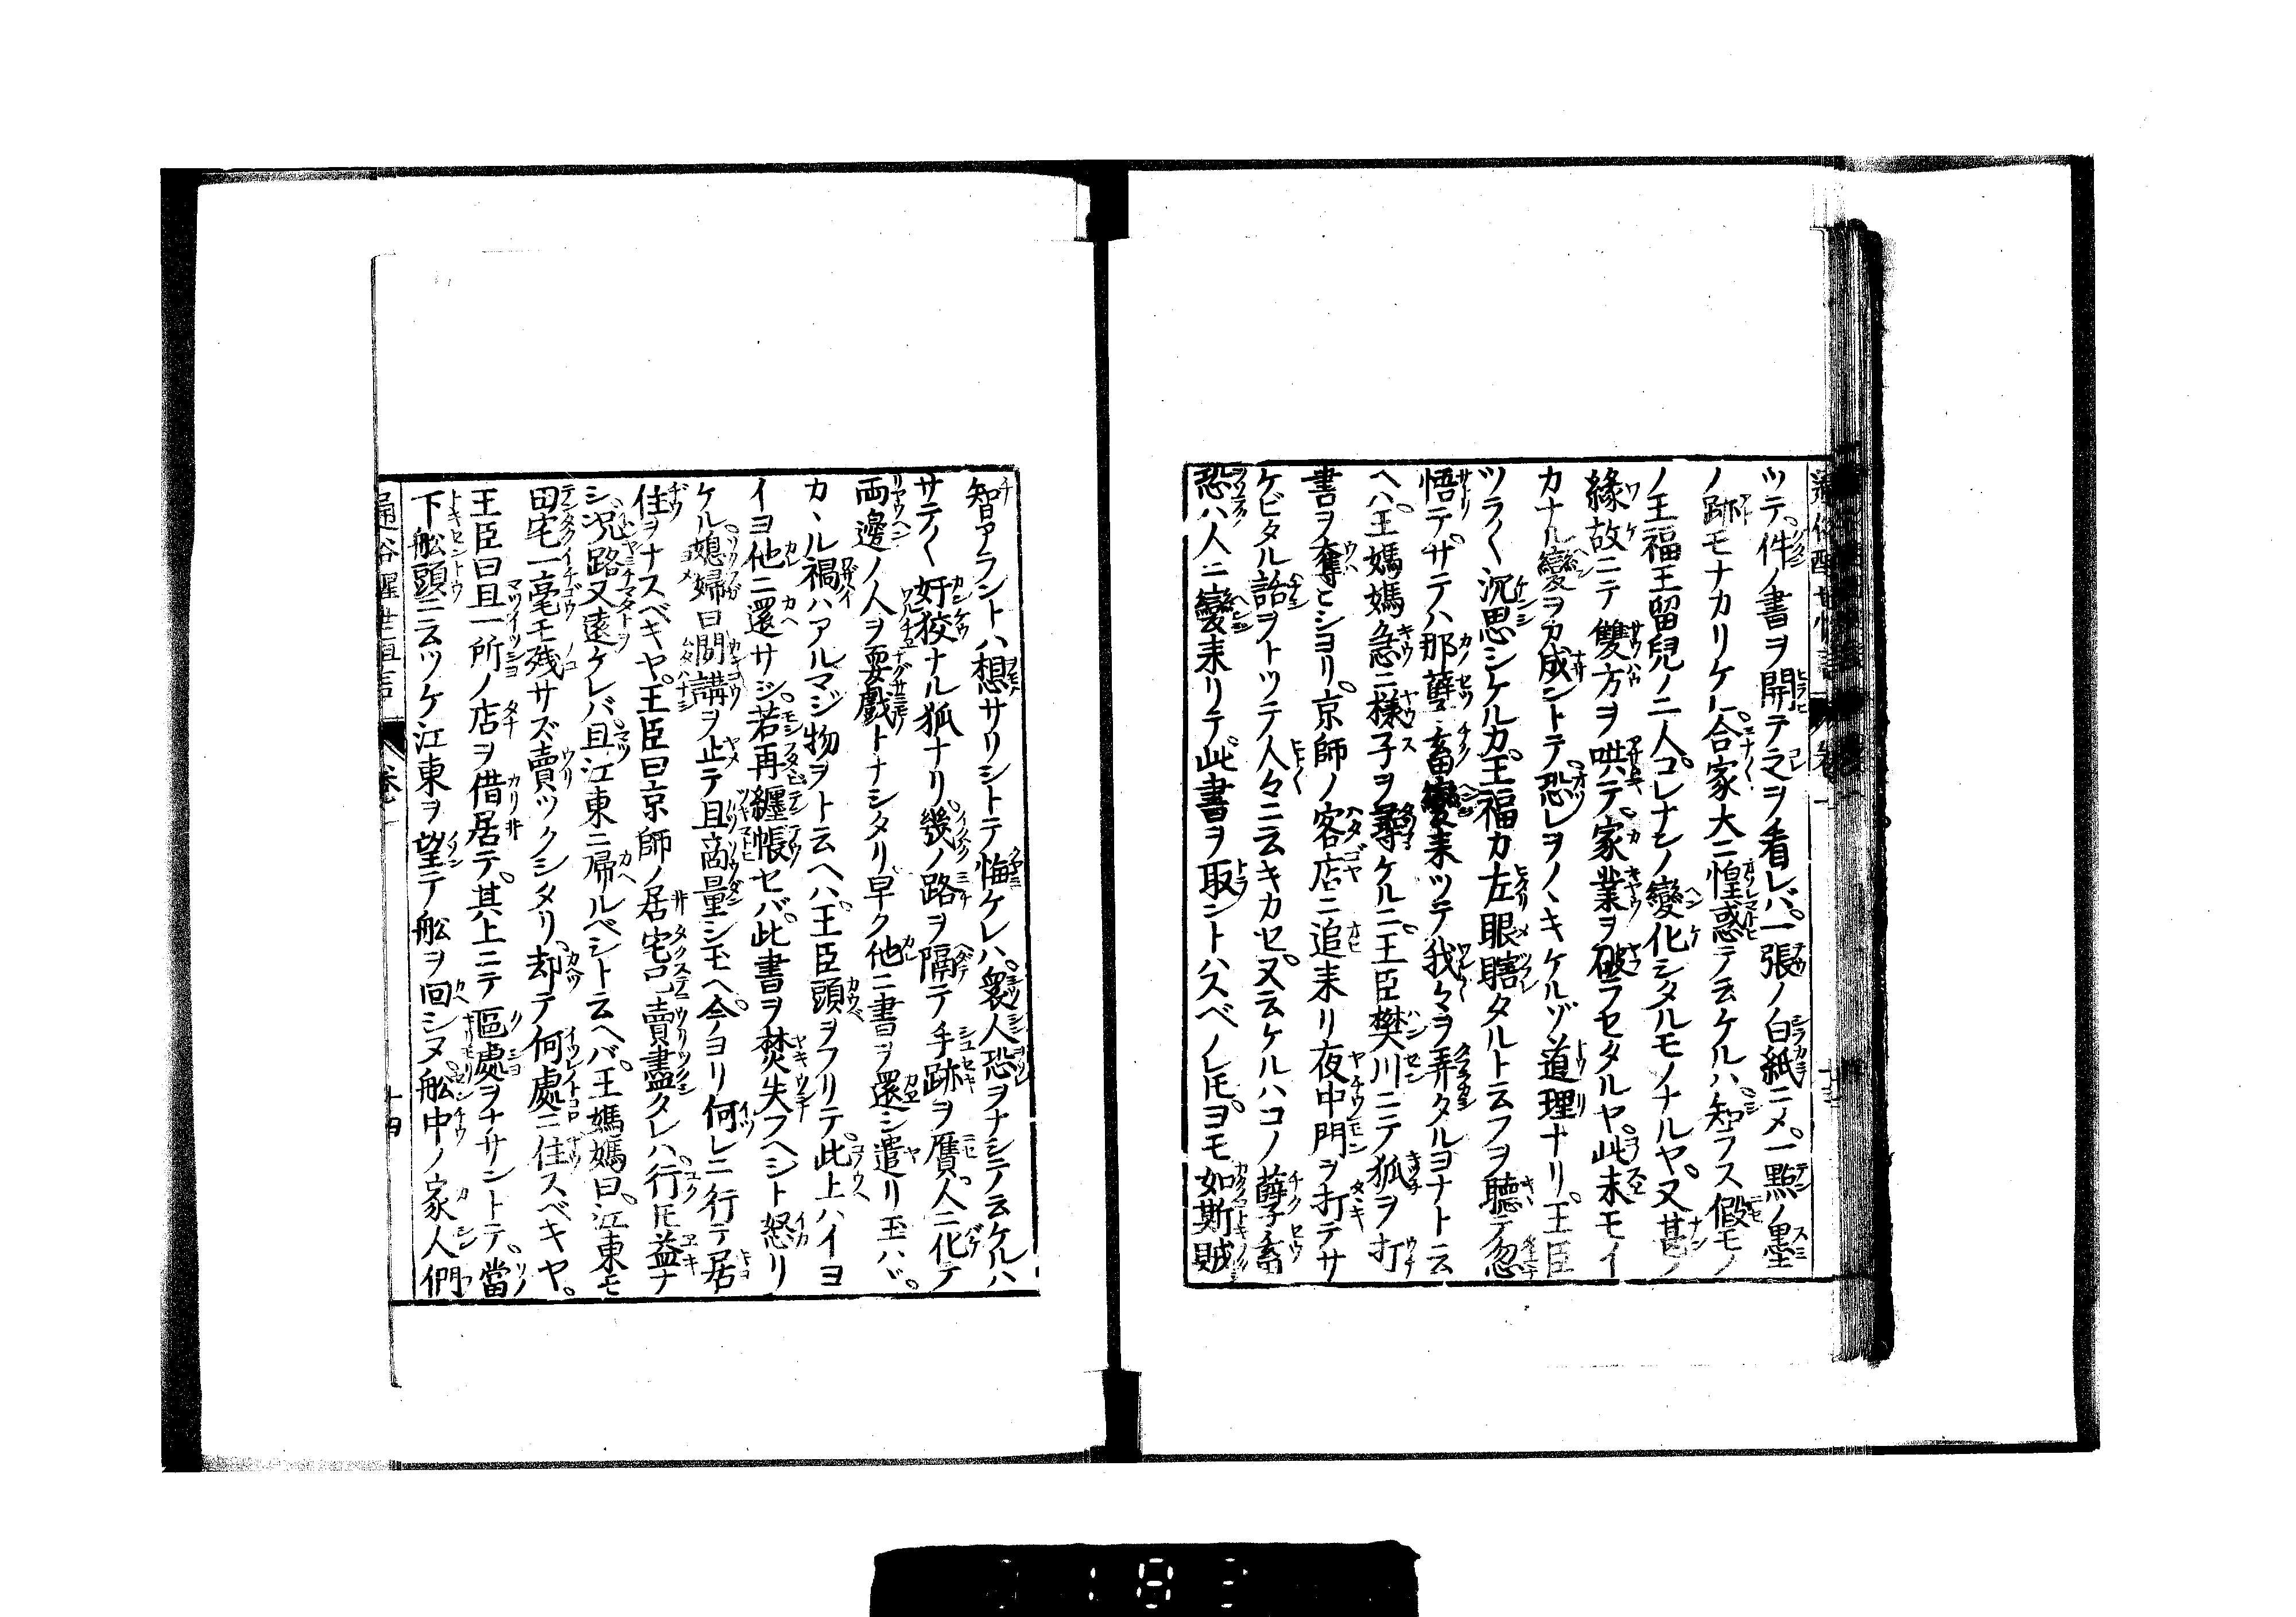 ツテ件ノ書ヲ開テ之ヲ看レバ。一張ノ白紙ニメ。一點ノ墨
ノ跡モナカリケレ𪜈。合家大ニ惶惑テ云ケルハ。知ラス假モノ
ノ王福王留兒ノ二人。コレナンノ變化シタルモノナルヤ。又甚ノ
緣故ニテ雙方ヲ哄テ。家業ヲ破ラセタルヤ。此末モイ
カナル變ヲカ成ントテ。恐レヲノヽキケルゾ道理ナリ。王臣
ツラ〱沉思シケルカ。王福カ左眼瞎タルト云フヲ聽テ忽
悟テ。サテハ那孽畜變來ツテ我々ヲ弄タルヨナト云
ヘハ。王媽媽急ニ樣子ヲ尋ケルニ。王臣樊川ニテ狐ヲ打
書ヲ奪ヒショリ。京師ノ客店ニ追來リ夜中門ヲ打テサ
ケビタル話ヲトツテ人々ニ云キカセ。又云ケルハコノ孽畜
恐ハ人ニ變來リテ此書ヲ取ントハスベノレ𪜈。ヨモ如斯賊
智アラントハ想サリシトテ悔ケレハ。衆人恐ヲナシテ云ケルハ
サテ〱奸狡ナル狐ナリ。幾ノ路ヲ隔テ手跡ヲ贋。人ニ化テ
両邊ノ人ヲ耍戲トナシタリ早ク他ニ書ヲ還シ遣リ玉ハヾ。
カヽル禍ハアルマジ物ヲト云ヘハ。王臣頭ヲフリテ。此上ハイヨ
イヨ他ニ還サジ。若再纒帳セバ。此書ヲ焚失フヘシト怒リ
ケル。媳婦曰閗講ヲ止テ且商量シ玉ヘ。今ヨリ何レニ行テ居
住ヲナスベキヤ。王臣曰京師ノ居宅已賣盡タレハ行𪜈益ナ
シ。況路又遠ケレバ。且江東ニ帰ルベシト云ヘバ。王媽媽曰。江東モ
田宅一毫モ残サズ賣ツクシタリ。却テ何處ニ住スベキヤ。
王臣曰且一所ノ店ヲ借居テ。其上ニテ區處ヲナサントテ。當
下舩頭ニ云ツケ江東ヲ望テ舩ヲ回シヌ。舩中ノ家人們
通俗醒世恒言 卷一 十四